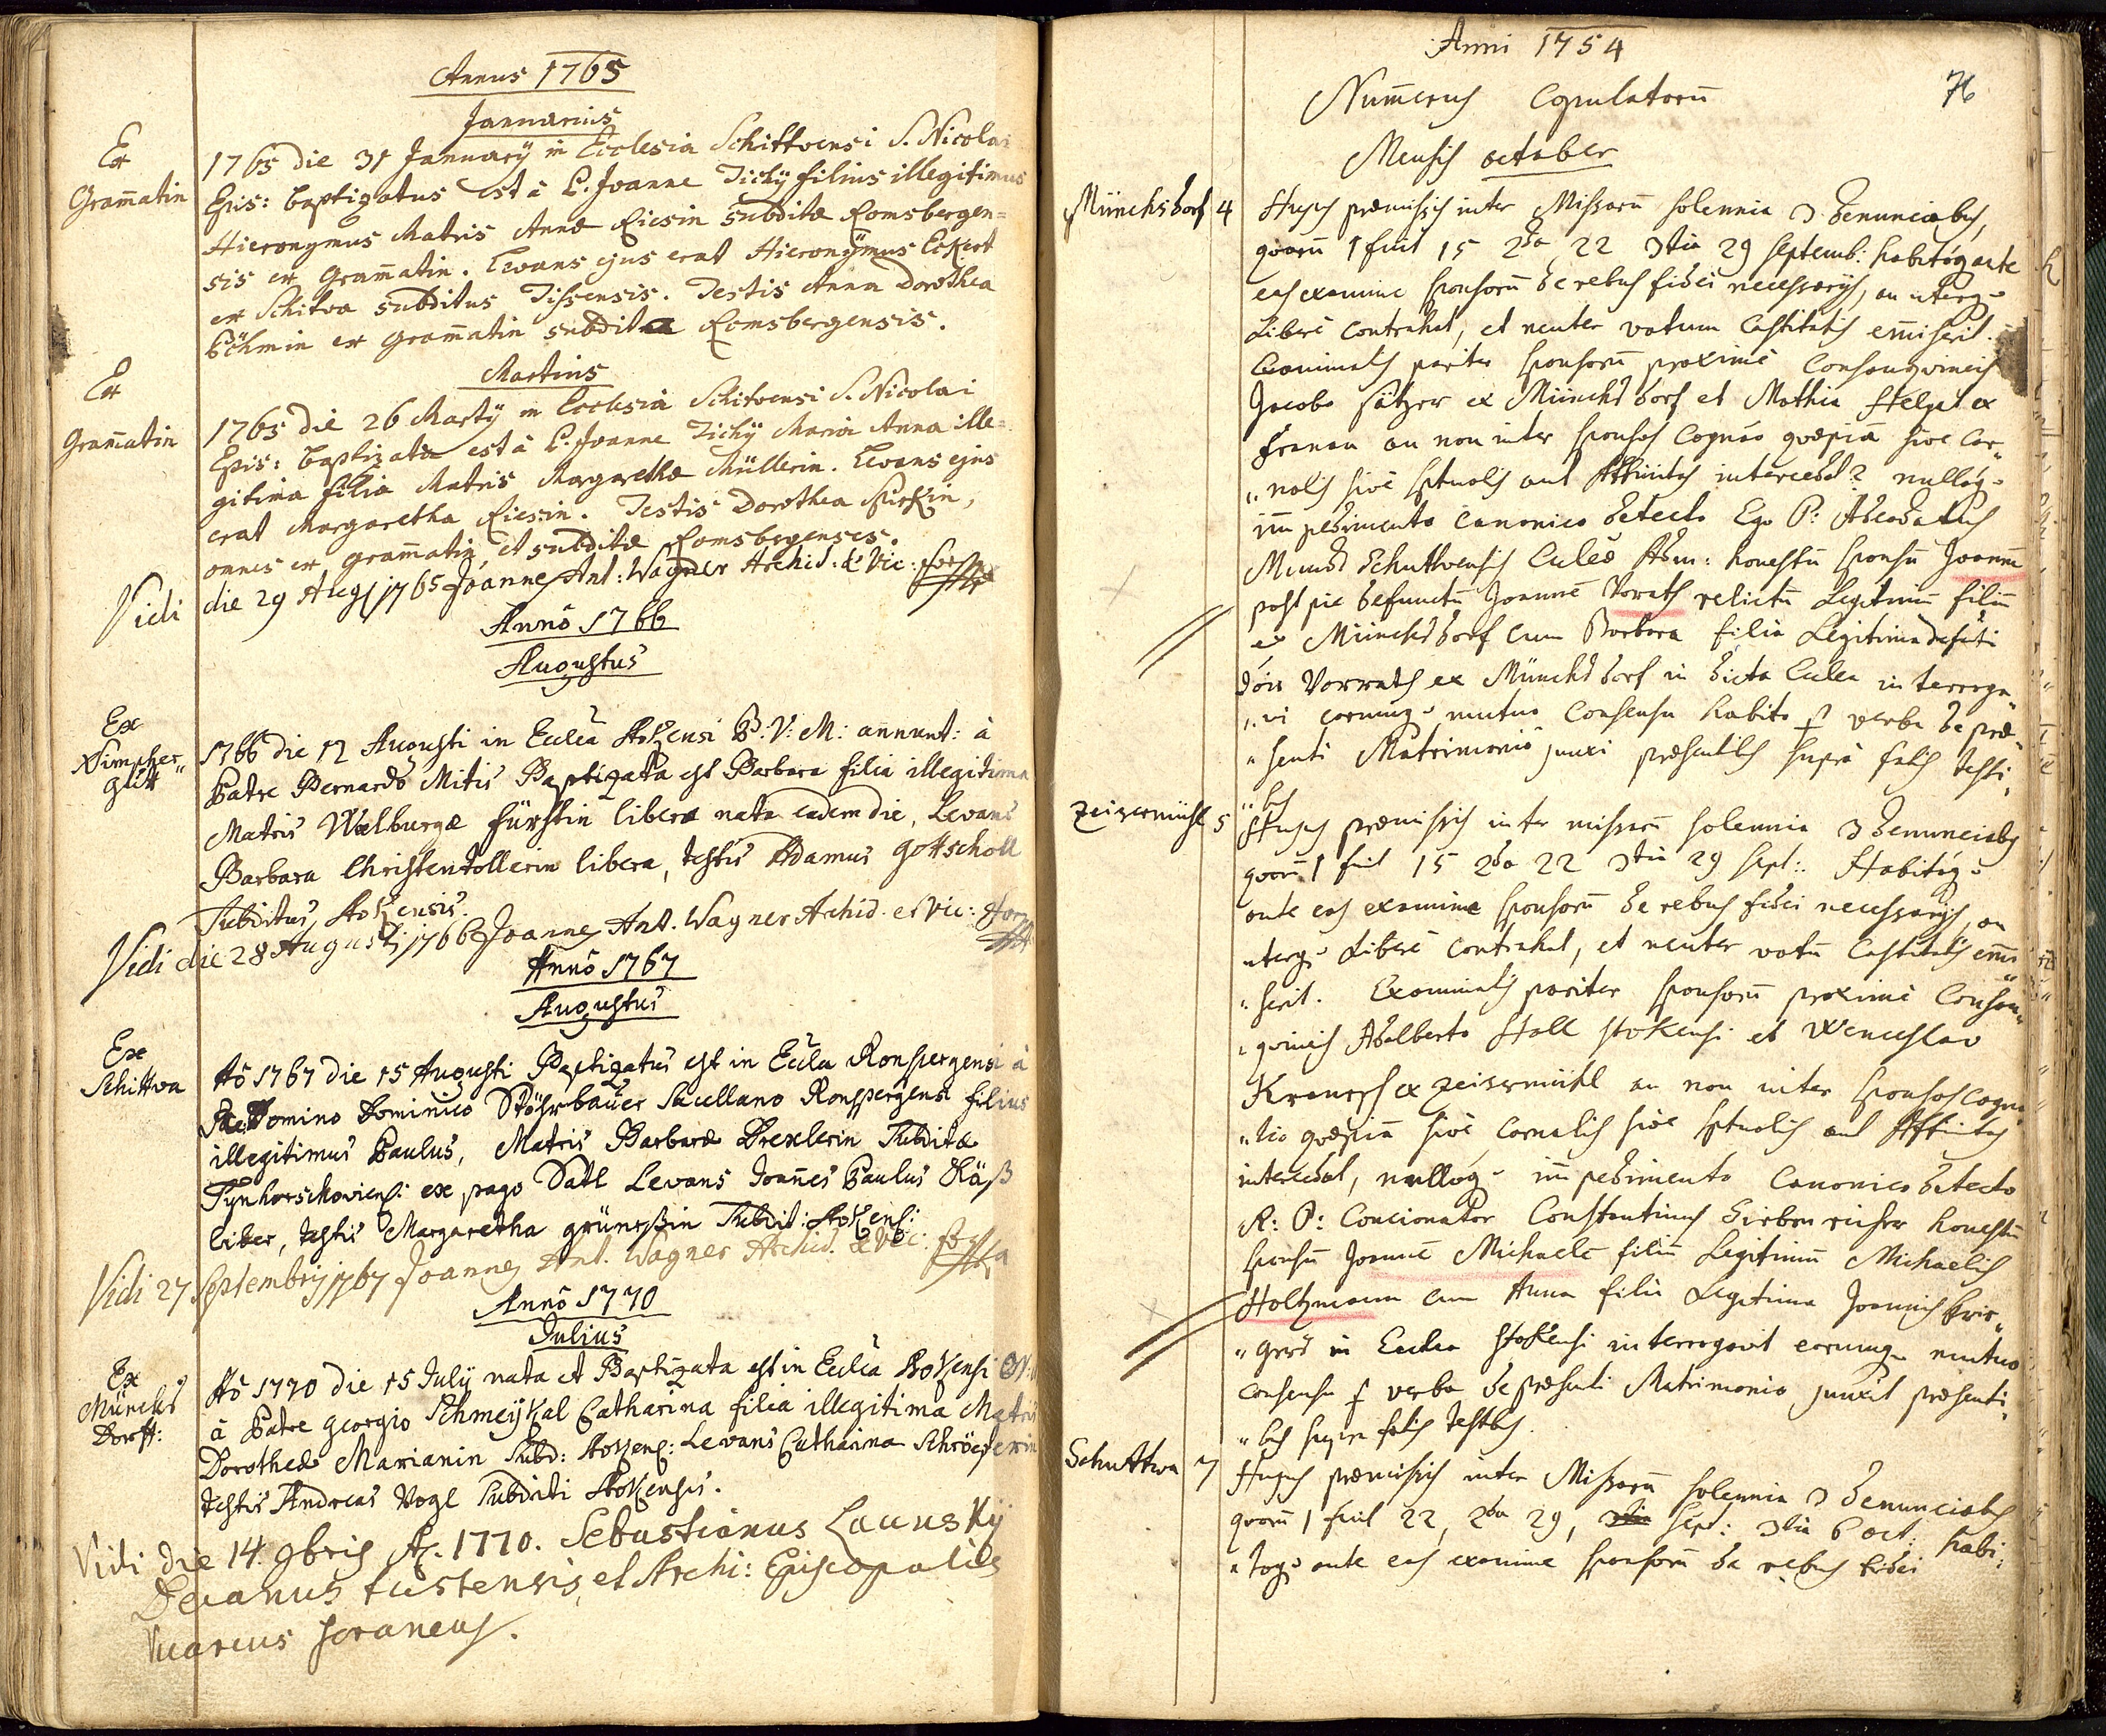 Annus 1765
Januarius
Ex
Gram̄atin
1765 die 31 January in Ecclesia Schittvensi S. Nicolai
Epis: baptizatus est à P. Joanne Tichÿ filius illegitimus
Hieronymus Matris Annæ Riesin subditæ Romsbergen=
sis ex Gram̄atin. Levans ejus erat Hieronÿmus Eckert
ex Schitva subditus Tissensis. Testis Anna Dorothea
Böhmin ex Gram̄atin subdita Romsbergensis.
Martius
Ex
Gram̄atin
1765 die 26 Martÿ in Ecclesia Schitvensi S. Nicolai
Epis: baptizata est à P. Joanne Tichÿ Maria Anna ille=
gitima filia Matris Margarethæ Müllerin. Levans ejus
erat Margaretha Riesin. Testis Dorothea
omnes ex Gram̄atin, et subditæ Romsbergenses.
Vidi die 29 Augj 1765 Joannes Ant: Wagner Archid: & Vic:
Annô 1766
Augustus
Ex
Nimpher„
gütt
1766 die 12 Augusti in Ecclâ Stokensi B: V: M: annunt: à
Patre Bernardo Mitis Baptizata est Barbara filia illegitima
Matris Walburgæ Fürstin liberæ nata eadem die, Levans
Barbara Christentollerin libera, testis Adamus Gottscholl
Subditus Stokensis.
Vidi die 28 Augusti 1766 Joannes Ant. Wagner Archid. et Vic:
Annô 1767
Augustus
Ex
Schittwa
Aô 1767 die 15 Augusti Baptizatus est in Eccla Ronspergensi à
Domino Dominico Stöhrbaŭer Sacellano Ronspergensi filius
illegitimus Paulus, Matris Barbaræ Drexlerin Subditæ
ex pago Satl Levans Joañes Paulus Käß
liber, testis Margaretha grüneßin Subdit: Stokens:
Vidi 27 Septembris 1767 Joannes Ant. Wagner Archid. & Vic:
Annô 1770
Julius
Ex
Münchs
Dorff:
Aô 1770 die 15 July nata et Baptizata est in Ecclâ Stokensi
à Patre Georgio Schmeÿkal Catharina filia illegitima Matris
Dorotheæ Marianin Subd: Stokens: Levans Catharina
testis Andreas Vogl Subditi Stokensis.
Vidi die 14. 9bris Ao. 1770. Sebastianus Launskÿ
Decanus tustensis, et Archi: Episcopalis
Vicarius foraneus.
Anni 1754
76
Num̄erus Copulatorū
Mensis october
Münchsdorf 4 Hujus præmissis inter Missarū solemnia 3 denunciabus,
quarū 1 fuit 15 2da 22 3tia 29 Septemb: habitoq ante
eas examine sponsorū de rebus fidei necessarijs, an uterq
Liberè contrahat, et neuter votum Castitatis em̄iserit.
Examinatis pariter sponsorū proximè Consangvineis
Jacobo Sätzer ex Münchsdorf et Mathia Stelzel ex
an non inter sponsos Cogn̄ao quæpiā sive Car„
„nalis sive sptualis aut Affinitas intercedat? nulloq
im̄pedimento Canonico detecto Ego P: Adeodatus
Mundt Schuttwensis Eccles Adm: honestū sponsū Joannem
post piè defunctū Joannē Vorath relictū Legitimū filiū
ex Münchsdorf cum Barbara filia Legitima defūcti
Vorrath ex Münchsdorf in dicta Eccla interroga„
„vi eorumq mutuo Consensu habito p verba de præ„
„senti Matrimonio junxi præsentibs suprà fatis testi„
„bs
Zeisermühl 5 Hujus præmissis inter missarū solemnia 3 denunciabs
quarū 1 fuit 15 2da 22 3tia 29 Sept: Habitoq
ante eas examine sponsorū de rebus fidei necessarijs, an
uterq Liberè contrahat, et neuter votū Castitatis em̄i
„serit. Examinatis pariter sponsorū proximè Consan„
„gvineis Adalberto Stoll Stokensi et Wenceslao
ex Zeisermühl an non inter sponsos Cogna
„tio quæpiā sivè Carnalis sive sptualis aut Affinitas
intercedat, nulloq im̄pedimento Canonico detecto
R: P: Concionator Constantinus honestū
sponsū Joannē Michaelē filiū Legitimū Michaelis
Holtzmann cum Anna filia Legitima Joannis
in Ecclea Stokensi interrogavit eorumq mutuo
consensu p verba de præsenti Matrimonio junxit præsenti„
„bus supra fatis testbs.
Schuttwa 7 Hujus præmissis inter Missarū solemnia 3 denunciabs
quarū 1 fuit 22, 2da 29, Sept: 3tia 6 oct: habi„
„toq ante eas examine sponsorū de rebus fidei